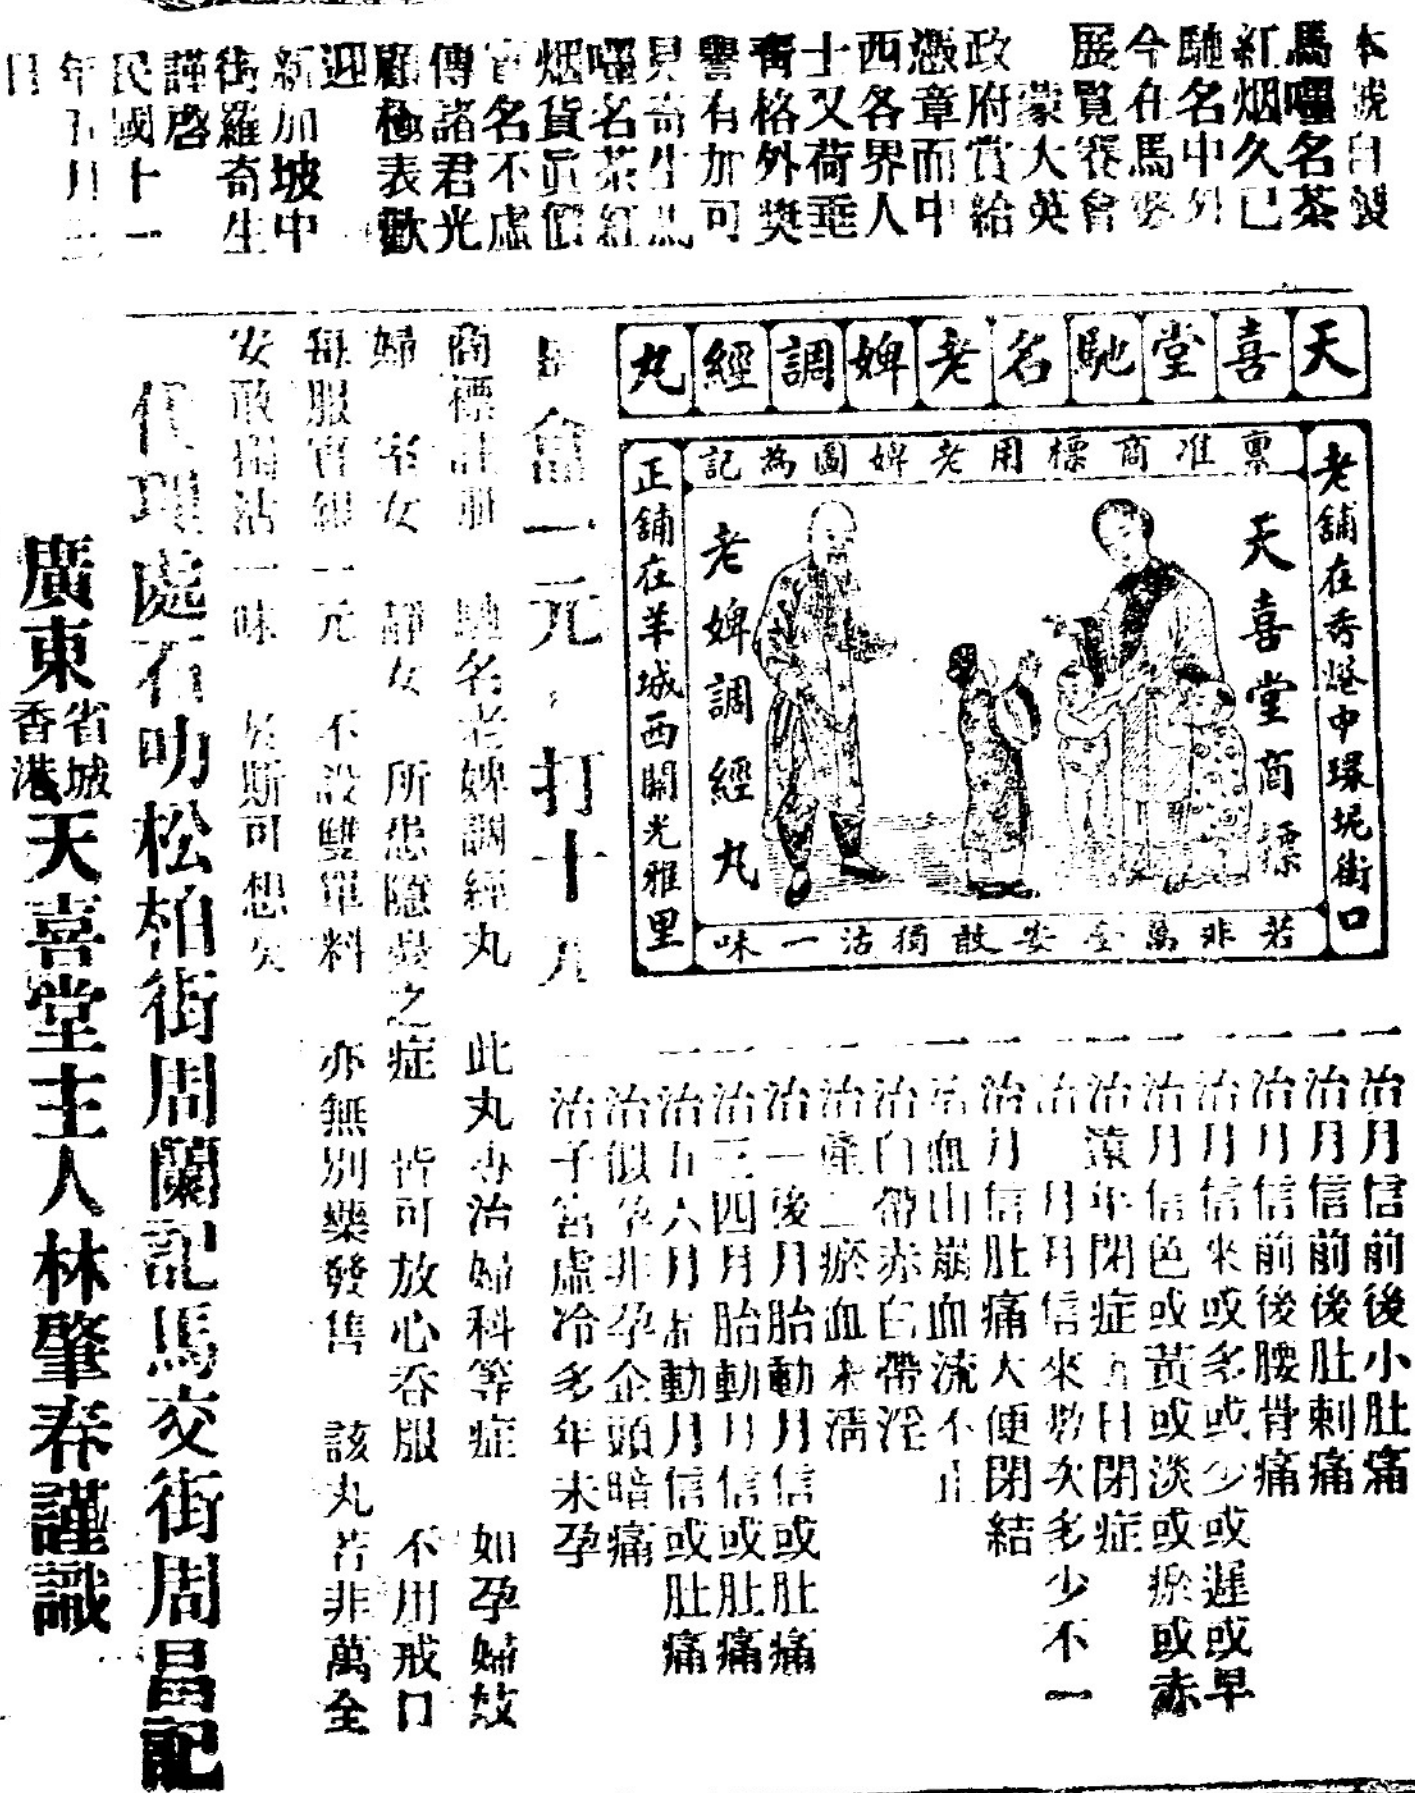 本號自製
馬嘽名茶
紅烟久已
馳名中外
今在馬婆
展覽賽會
蒙大英
政府賞給
憑章而中
西各界人
士又荷垂
青格外獎
譽有加可
見奇生馬
嘽名茶紅
烟貨真價
實名不虛
傳諸君光
顧極表歡
迎
新加坡中
街羅奇生
謹啓
民國十一
年五月
日
天喜堂馳名老婢調經丸
稟准商標用老婢圖為記
老舖在香港中環坭街口
天喜堂商標
老婢調經丸
正舖在羊城西關光雅里
若非萬全安敢獨沽一味
一治月信前後小肚痛
一治月信前後肚刺痛
一治月信前後腰骨痛
一治月信來或多或少或遲或早
一治月信色或黃或淡或瘀或赤
一治遠年閉症 日閉症
一治 月月信來數次多少不一
一治月信肚痛大便閉結
一治血山崩血流不止
一治白帶赤白帶淫
一治產二瘀血未清
一治一後月胎動月信或肚痛
一治三四月胎動月信或肚痛
一治五六月胎動月信或肚痛
一治似孕非孕企頭暗痛
一治子宮虛冷多年未孕
每會一元 打十元
商標註冊 馳名老婢調經丸 此丸專治婦科等症 如孕婦故
婦 室女 靜女 所患隱之症 皆可放心吞服 不用戒口
每服官銀一元 不設雙單料 亦無別藥發售 該丸若非萬全
安敢獨沽一味 於斯可想矣
代理處石叻松柏街周蘭記馬交街周昌記
廣東省城香港天喜堂主人林肇春謹識